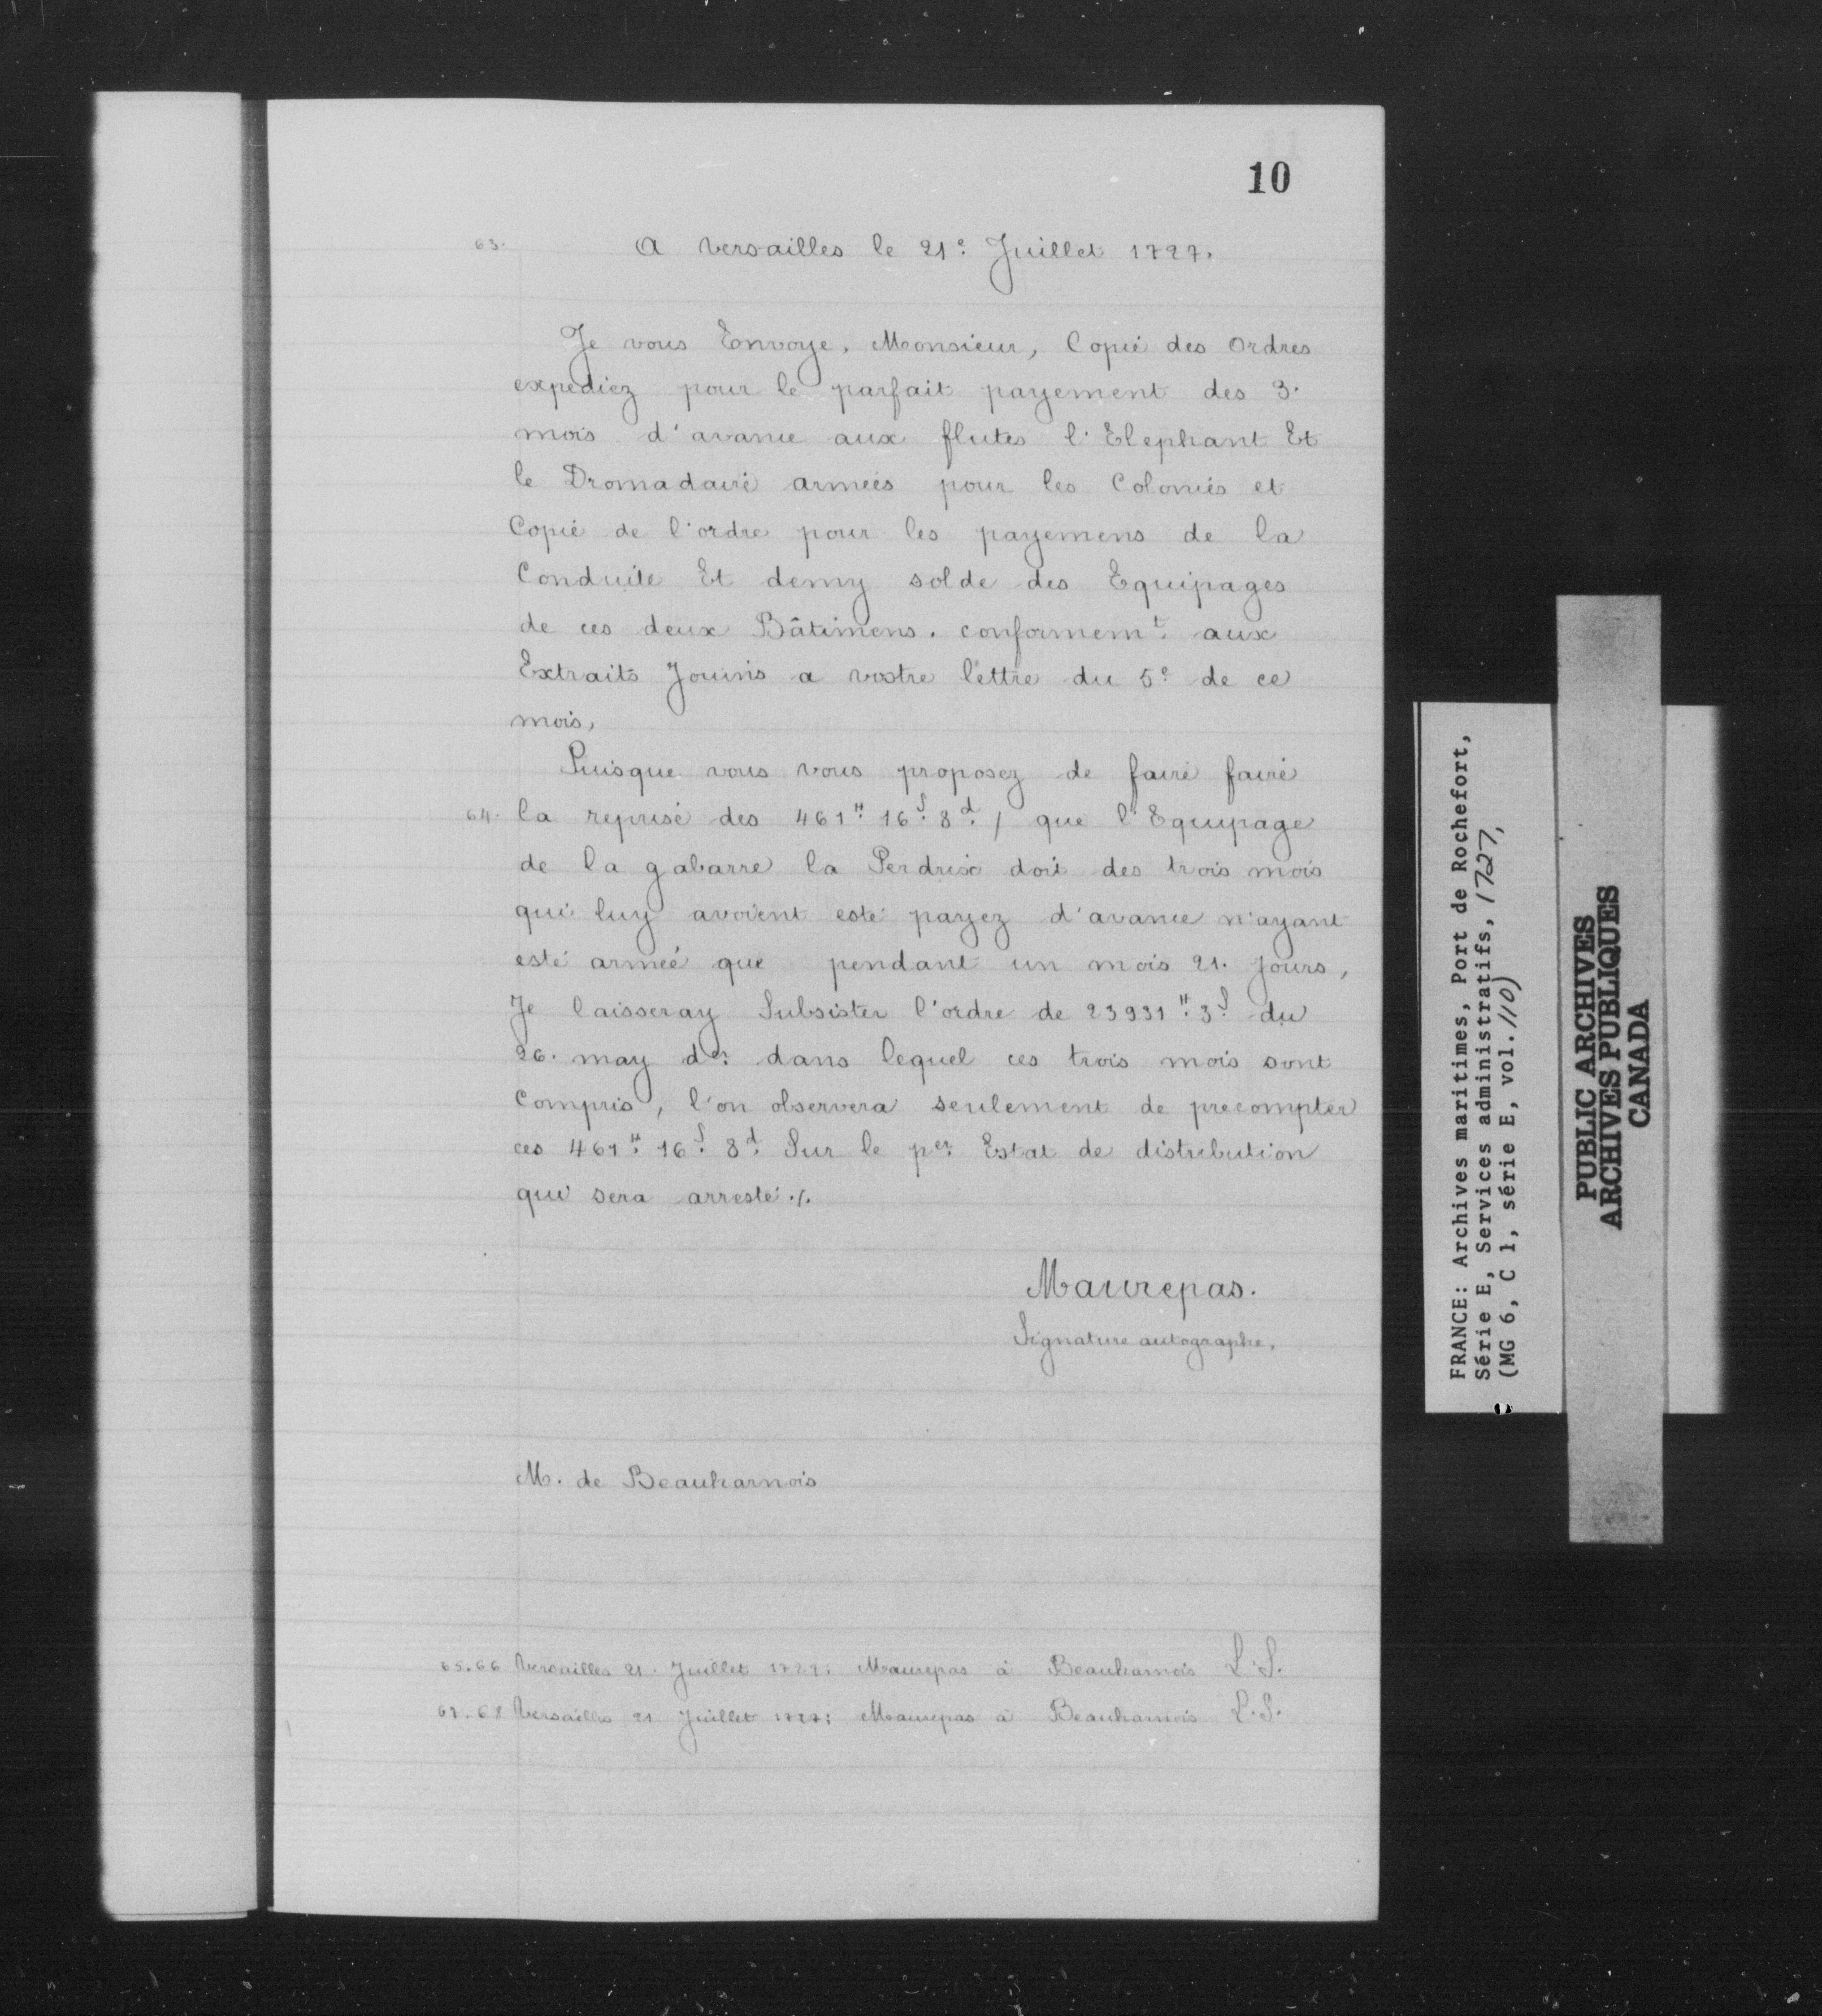 10
63. A Versailles le 21e Juillet 1727.
Je vous Envoye, Monsieur, Copie des Ordres
expediez pour le parfait payement des 3.
mois d'avance aux flutes l'Elephant Et
le Dromadaire armées pour les Colonies et
Copie de l'ordre pour les payemens de la
Conduite Et demy solde des Equipages
de ces deux Bâtimens. conformemt. aux
Extraits Jouins a vostre lettre du 5e de ce
mois,
Puisque vous vous proposez de faire faire
64. la reprise des 461tt 16s 8d / que l'Equipage
de la gabarre la Perdrix doit des trois mois
qui luy avoient esté payez d'avance n'ayant
esté armée que pendant un mois 21. jours,
Je laisseray Subsister l'ordre de 23931tt 3s du
26. may der. dans lequel ces trois mois sont
Compris, l'on observera seulement de precompter
ces 461tt 16s 8d Sur le per. Estat de distribution
qui sera arresté ./.
Maurepas.
Signature autographe.
M. de Beauharnois
65.66 Versailles 21. Juillet 1727; Maurepas à Beauharnois L.S.
67.68 Versailles 21 Juillet 1727; Maurepas à Beauharnois L.S.
FRANCE: Archives maritimes, Port de Rochefort,
Série E, Services administratifs, 1727,
(MG 6, C 1, série E, vol. 110)
PUBLIC ARCHIVES
ARCHIVES PUBLIQUES
CANADA